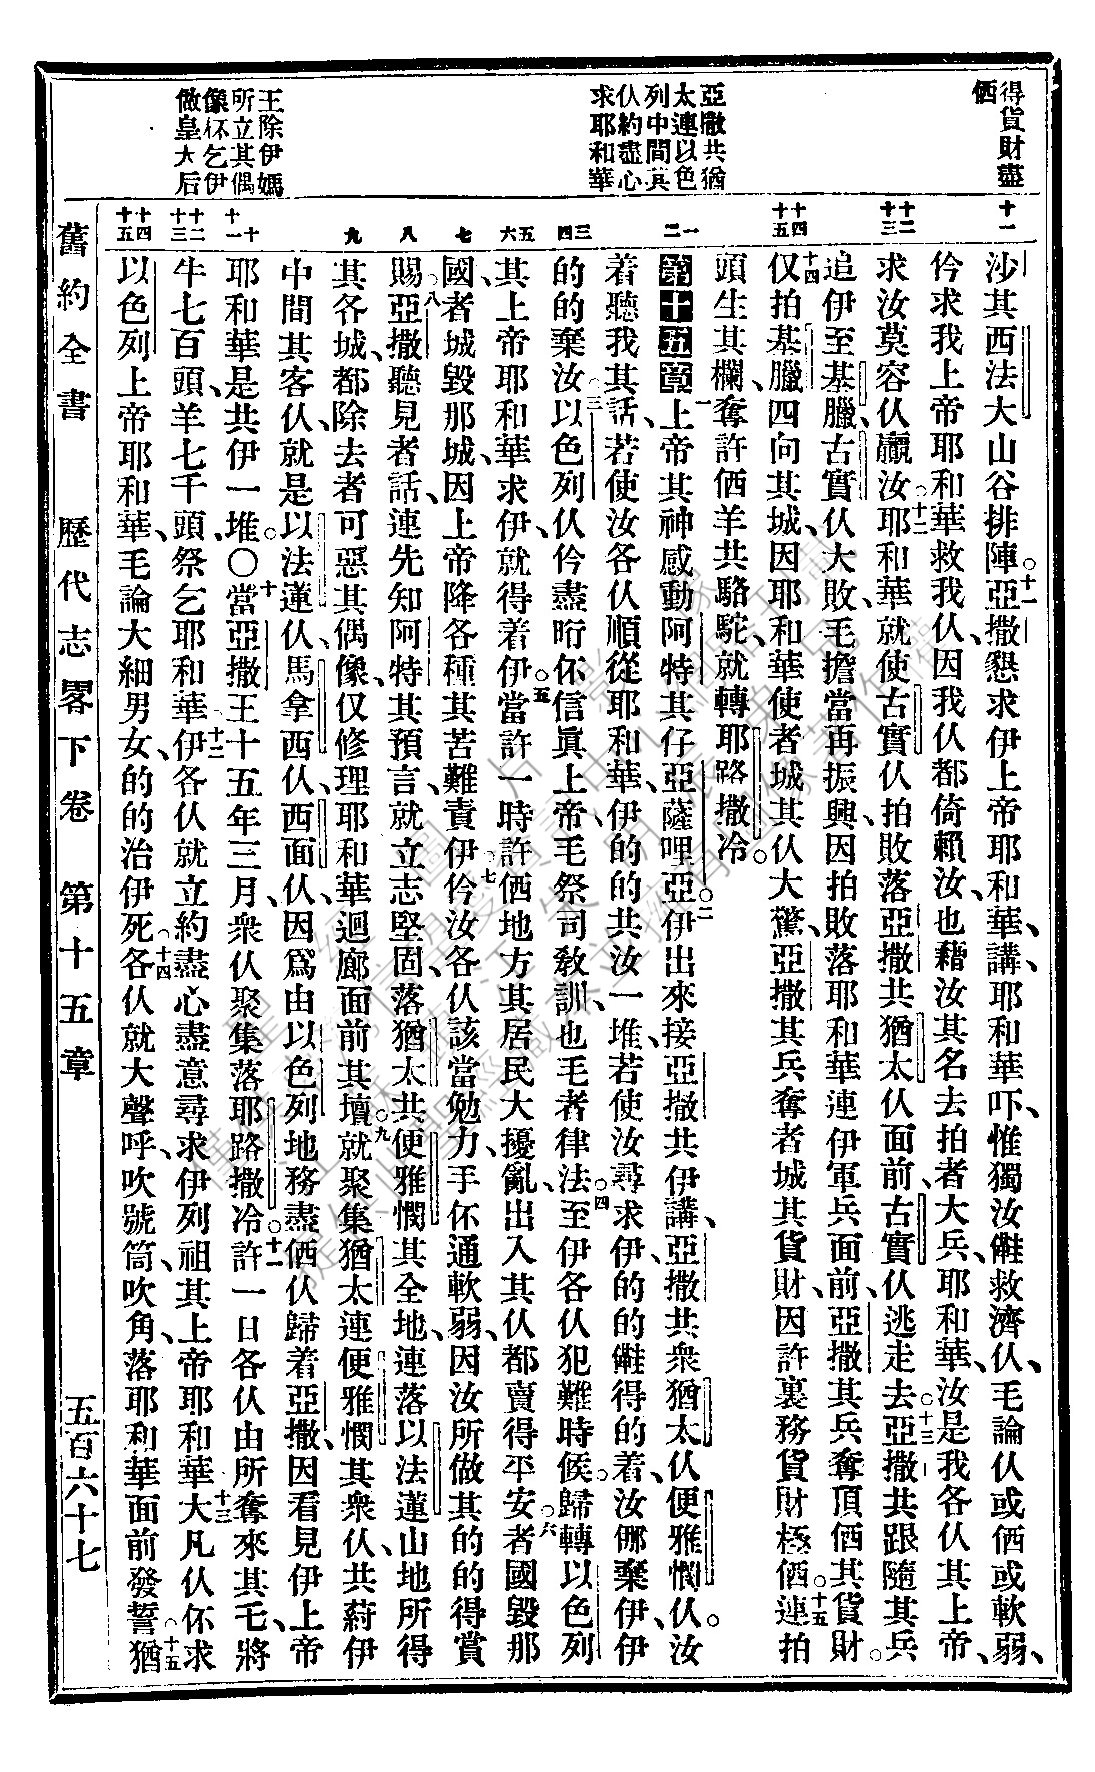 得貨財盡
䆀
亞撒共猶
太連以色
列中間其
仈約盡心
求耶和華
王除伊媽
所立其偶
像杯乞伊
做皇大后
十一
沙其西法大山谷排陣。十一亞撒懇求伊上帝耶和華、講、耶和華吓、惟獨汝㑚救濟仈、毛論仈或䆀或軟弱、
仱求我上帝耶和華救我仈、因我仈都倚賴汝、也藉汝其名去拍者大兵、耶和華、汝是我各仈其上帝、
十二
十三
求汝莫容仈贏汝。十二耶和華就使古實仈拍敗落亞撒共猶太仈面前、古實仈逃走去。十三亞撒共跟隨其兵
追伊至基臘、古實仈大敗、毛擔當再振興、因拍敗落耶和華連伊軍兵面前、亞撒其兵奪頂䆀其貨財。
十四
十五
十四仅拍基臘四向其城、因耶和華使者城其仈大驚、亞撒其兵奪者城其貨財、因許裏務貨財極䆀。十五連拍
頭生其欄、奪許䆀羊共駱駝、就轉耶路撒冷。
一
二
第十五章一上帝其神感動阿特其仔亞薩哩亞。二伊出來接亞撒共伊講、亞撒共衆猶太仈便雅憫仈、汝
着聽我其話、若使汝各仈順從耶和華、伊的的共汝一堆、若使汝尋求伊、的的㑚得的着、汝㑚棄伊、伊
三
四
的的棄汝。三以色列仈仱盡晌伓信眞上帝、毛祭司敎訓、也毛者律法。四至伊各仈犯難時候、歸轉以色列
五
六
其上帝耶和華求伊、就得着伊。五當許一時許䆀地方其居民大擾亂、出入其仈都賣得平安。六者國毀那
七
國、者城毀那城、因上帝降各種其苦難責伊。七仱汝各仈該當勉力、手伓通軟弱、因汝所做其的的得賞
八
賜。八亞撒聽見者話、連先知阿特其預言、就立志堅固、落猶太共便雅憫其全地、連落以法蓮山地所得
九
其各城、都除去者可惡其偶像、仅修理耶和華迴廊面前其壇。九就聚集猶太連便雅憫其衆仈、共葑伊
中間其客仈、就是以法蓮仈、馬拿西仈、西面仈、因爲由以色列地務盡䆀仈歸着亞撒、因看見伊上帝
十
十一
耶和華是共伊一堆。○十當亞撒王十五年三月、衆仈聚集落耶路撒冷。十一許一日各仈由所奪來其乇、將
十二
十三
牛七百頭、羊七千頭、祭乞耶和華。十二伊各仈就立約、盡心盡意尋求伊列祖其上帝耶和華。十三大凡仈伓求
十四
十五
以色列上帝耶和華、毛論大細男女、的的治伊死。十四各仈就大聲呼、吹號筒、吹角、落耶和華面前發誓。十五猶
舊約全書
歷代志畧下卷
第十五章
五百六十七